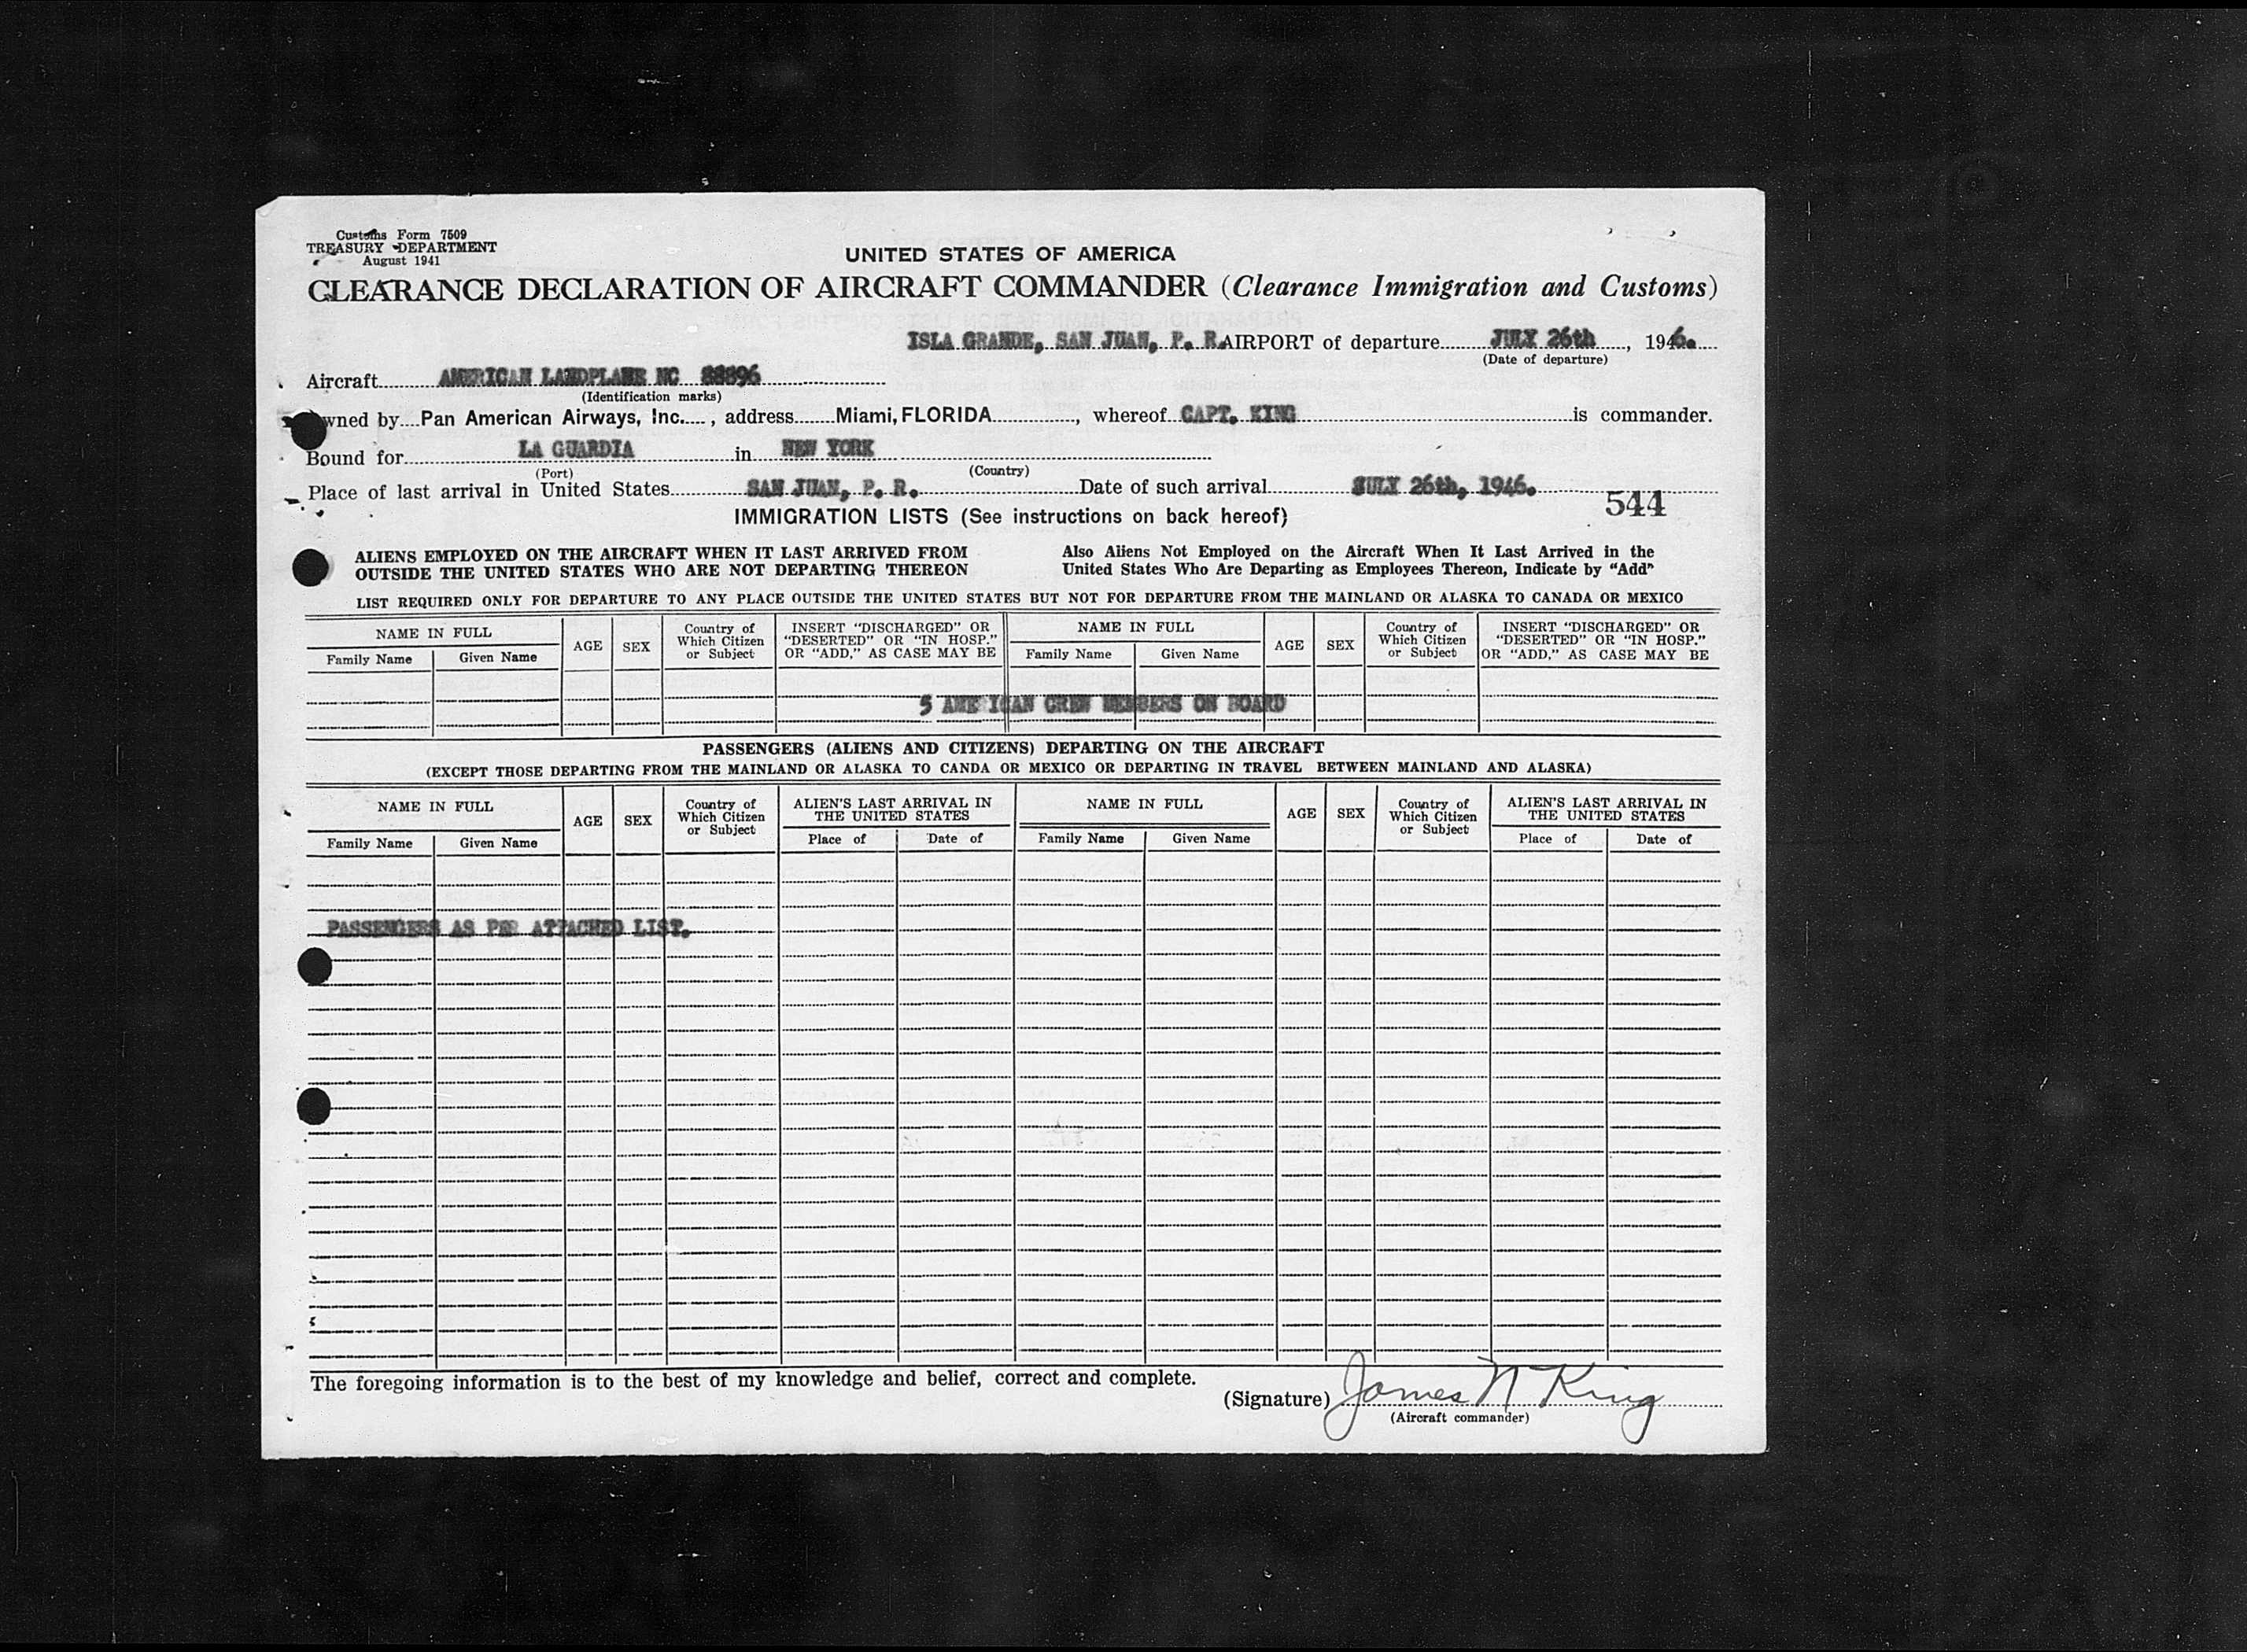 Customs Form 7509
TREASURY DEPARTMENT
August 1941
UNITED STATES OF AMERICA
CLEARANCE DECLARATION OF AIRCRAFT COMMANDER (Clearance Immigration and Customs)
ISLA GRANDE, SAN JUAN, P. R. AIRPORT of departure JULY 26th, 1946.
(Date of departure)
Aircraft AMERICAN LANDPLANE NC 88896
(Identification marks)
Owned by Pan American Airways, Inc., address Miami, FLORIDA, whereof CAPT. KING is commander.
Bound for LA GUARDIA in NEW YORK
(Port) (Country)
Place of last arrival in United States SAN JUAN, P. R. Date of such arrival JULY 26th, 1946.
544
IMMIGRATION LISTS (See instructions on back hereof)
ALIENS EMPLOYED ON THE AIRCRAFT WHEN IT LAST ARRIVED FROM
OUTSIDE THE UNITED STATES WHO ARE NOT DEPARTING THEREON
Also Aliens Not Employed on the Aircraft When It Last Arrived in the
United States Who Are Departing as Employees Thereon, Indicate by "Add"
LIST REQUIRED ONLY FOR DEPARTURE TO ANY PLACE OUTSIDE THE UNITED STATES BUT NOT FOR DEPARTURE FROM THE MAINLAND OR ALASKA TO CANADA OR MEXICO
NAME IN FULL
Family Name Given Name
AGE
SEX
Country of
Which Citizen
or Subject
INSERT "DISCHARGED" OR
"DESERTED" OR "IN HOSP."
OR "ADD," AS CASE MAY BE
NAME IN FULL
Family Name Given Name
AGE
SEX
Country of
Which Citizen
or Subject
INSERT "DISCHARGED" OR
"DESERTED" OR "IN HOSP."
OR "ADD," AS CASE MAY BE
5 AMERICAN CREW MEMBERS ON BOARD
PASSENGERS (ALIENS AND CITIZENS) DEPARTING ON THE AIRCRAFT
(EXCEPT THOSE DEPARTING FROM THE MAINLAND OR ALASKA TO CANDA OR MEXICO OR DEPARTING IN TRAVEL BETWEEN MAINLAND AND ALASKA)
NAME IN FULL
Family Name Given Name
AGE
SEX
Country of
Which Citizen
or Subject
ALIEN'S LAST ARRIVAL IN
THE UNITED STATES
Place of Date of
NAME IN FULL
Family Name Given Name
AGE
SEX
Country of
Which Citizen
or Subject
ALIEN'S LAST ARRIVAL IN
THE UNITED STATES
Place of Date of
PASSENGERS AS PER ATTACHED LIST.
The foregoing information is to the best of my knowledge and belief, correct and complete.
(Signature) James N King
(Aircraft commander)